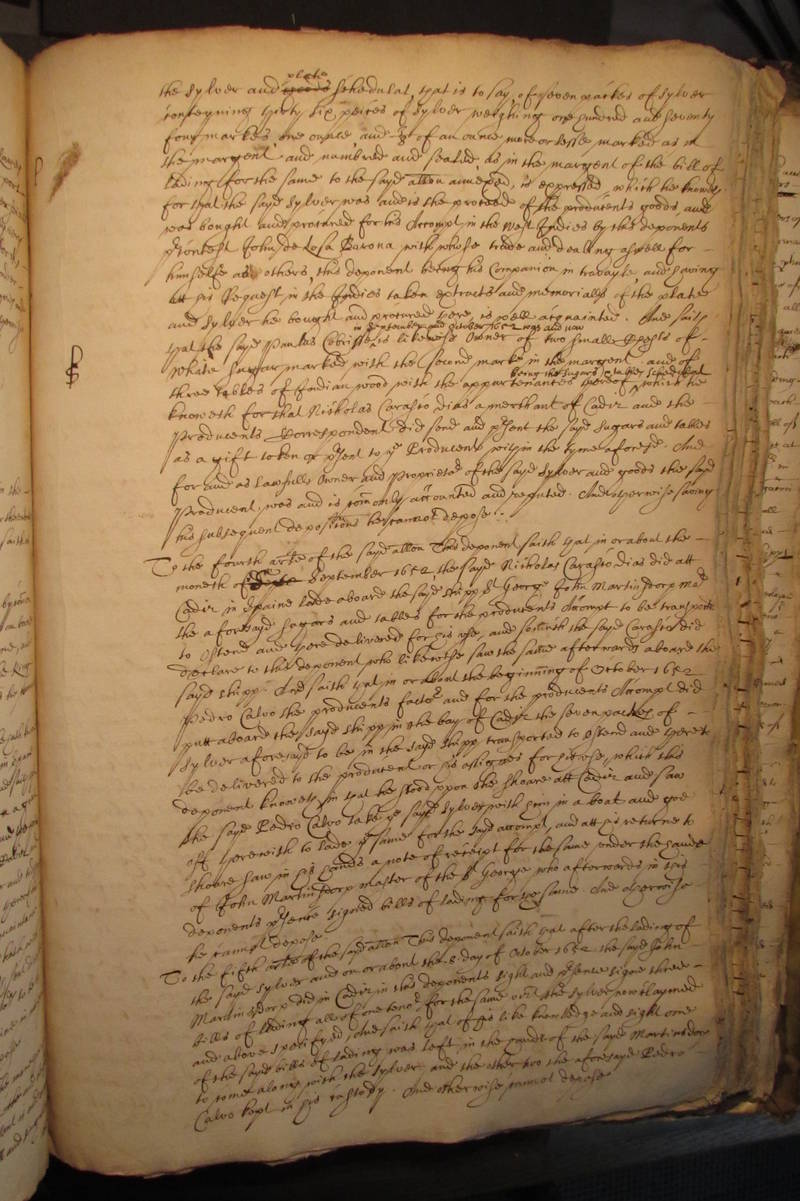 plate
the sylver and goods schedulat, that is to say, of seven packes of sylver
conteyning thirty six peices of sylver weighing one hundred and seventy
four markes, one ounce, and of an ounce more or lesse marked as in
the margent and numbred and sealed as in the margent of the bill of
lading for the same to the sayd allon annexed, is expressed, which he knoweth
for that the sayd sylver was and is the proceede of the producents goods, and
was bought and procured for his Accompt in the West Indies by this deponents
contest John de Rosa Barona with whose trade and dealing aswell for
himselfe as others, this deponent being his Companion in travayle, and having
att his Request in the Indies taken extracts and memorialls of the plate
and sylver he bought and procured there, is well acquainted. And saith
in September and October 1652 was and now
that the sayd Paulus is likewise Owner of two smalle Chests of
white sugar marked with the second marke in the margent and of
being the sugars & tables schedulat
three tables of Indian wood with the appurtenances thereof which he
knoweth for that Nicholas Carasio dias a merchant of Cadiz and the
Producents Correspondent did send and present the sayd sugars and tables
as a gift token or present to ye Producent within the tyme aforesd. And
for and as lawfull Owner and Proprietor of the sayd sylver and goods the sayd
Producent was and is comonly accounted and reputed. And otherwise saving
his subsequent depositions hee cannot depose.
To the fourth arle of the sayd allon This deponent saith that in or about the
moneth of September 1652, the sayd Nicholas Carasio dias did att
Cadiz in Spaine lade aboard the sayd shipp St George John Martinsdorp Mr
the aforesayd sugars and tables for the producents Accompt to be transported
to Ostend and there delivered for his use, and soe much the sayd Carasio did
declare to this deponent who likewise saw the same afterwards aboard the
sayd shipp. And saith that in or about the beginning of October 1652
Pedro Calvo the producents factor and for the producents Accompt did
putt aboard the sayd shipp in the bay of Cadiz the seven packes of
sylver aforesayd to be in the sayd shipp transported to Ostend and there to
be delivered to the producent or his assignes for his use, which this
deponent knoweth in that he stood uppon the shoare att Cadiz and saw
the sayd Pedro Calvo take ye sayd sylver with him in a boat and goe
off therewith to lade ye same for the sayd accompt, and att his returne to
shoare saw in his hands a note of receipt for the same under the hande
of John Martinsdorp master of the St George who afterwards in this
deponents presence signed bills of lading for the same. And otherwise
he cannot depose
To the fifth arle of the sayd allon This deponent saith that after the lading of
the sayd sylver and on or about the 8 day of October 1652 the sayd John
Martinsdorp did in Cadiz in this deponents sight and presence signe three
bills of lading all of one tenor for the same the sylver now claymed
and above specifyed, and saith that of his like knowledge and sight one
of the sayd bills of lading was left in the hands of the sayd Martinsdorp
to come along with the sylver and the other two the aforesayd Pedro
Calvo kept in his custody. And otherwise cannot depose